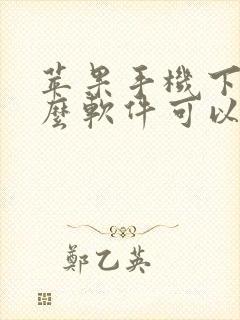 苹果手機下
麼軟件可以
鄭乙英